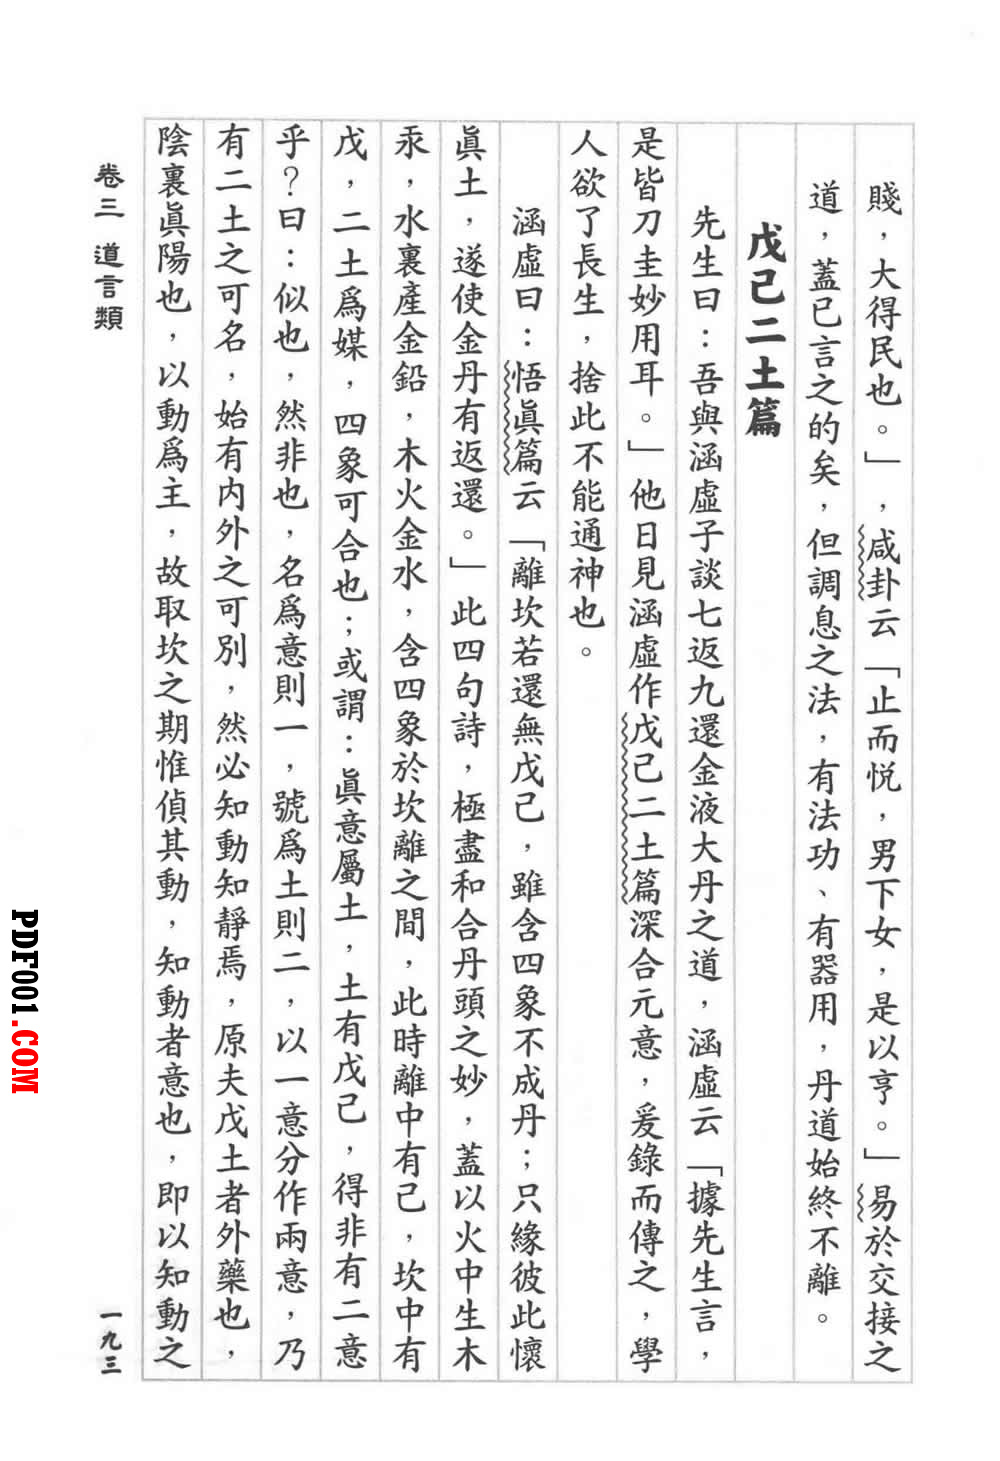 賤，大得民也。」，咸卦云「止而悅，男下女，是以亨。」易於交接之
道，蓋已言之的矣，但調息之法，有法功、有器用，丹道始終不離。
戊己二土篇
先生曰：吾與涵虛子談七返九還金液大丹之道，涵虛云「據先生言，
是皆刀圭妙用耳。」他日見涵虛作戊己二土篇深合元意，爰錄而傳之，學
人欲了長生，捨此不能通神也。
涵虛曰：悟眞篇云「離坎若還無戊己，雖含四象不成丹；只緣彼此懷
眞土，遂使金丹有返還。」此四句詩，極盡和合丹頭之妙，蓋以火中生木
汞，水裏產金鉛，木火金水，含四象於坎離之間，此時離中有己，坎中有
戊，二土爲媒，四象可合也；或謂：眞意屬土，土有戊己，得非有二意
乎？曰：似也，然非也，名爲意則一，號爲土則二，以一意分作兩意，乃
有二土之可名，始有内外之可別，然必知動知靜焉，原夫戊土者外藥也，
陰裏眞陽也，以動爲主，故取坎之期惟偵其動，知動者意也，即以知動之
卷三 道言類
一九三
PDF001.COM